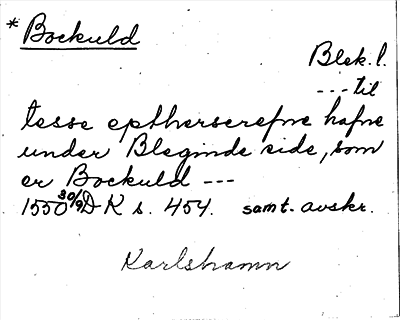 * Bockuld
Blek. l.
--- til
tesse eptherscrefne hafne
under Bleginde side, som
er Bockuld ---
1550 30/9 DK s. 454. samt. avskr.
Karlshamn